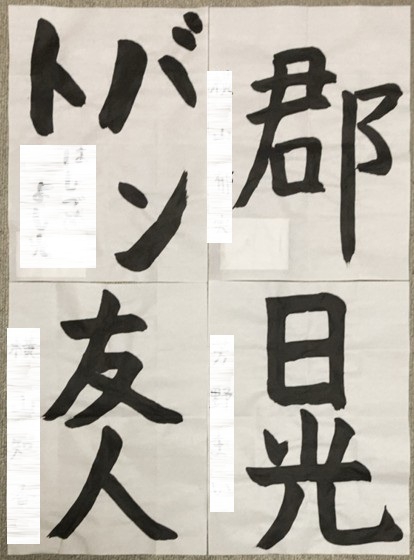 郡
バン
ト
日光
友人